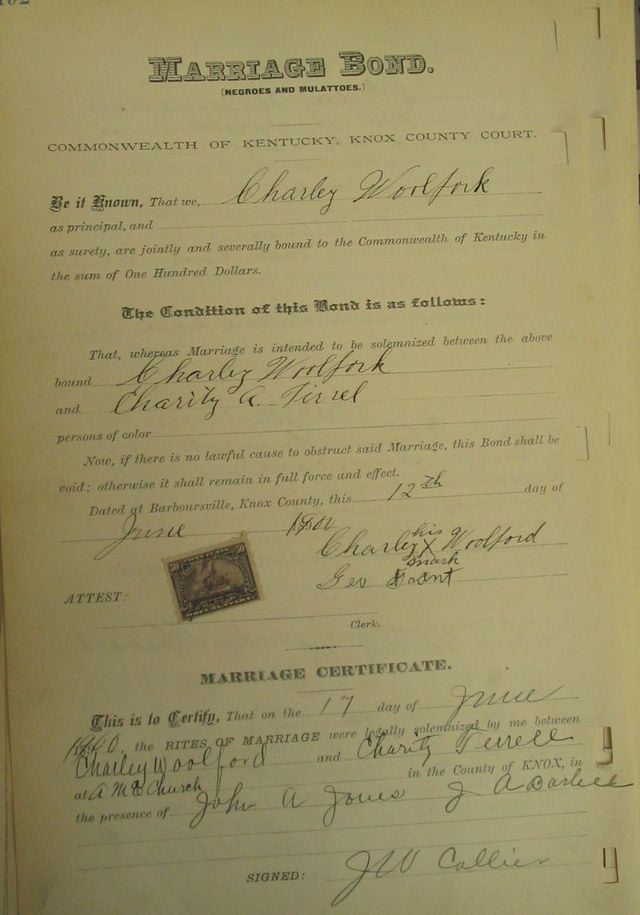 MARRIAGE BOND.
[NEGROES AND MULATTOES.]
COMMONWEALTH OF KENTUCKY, KNOX COUNTY COURT.
Be it Known, That we, Charley Woolfork
as principal, and
as surety, are jointly and severally bound to the Commonwealth of Kentucky in
the sum of One Hundred Dollars.
The Condition of this Bond is as follows:
That, whereas Marriage is intended to be solemnized between the above
bound Charley Woolfork
and Charity A. Tirrel
persons of color
Now, if there is no lawful cause to obstruct said Marriage, this Bond shall be
void; otherwise it shall remain in full force and effect.
Dated at Barboursville, Knox County, this 12th day of
June 1900
Charley his X mark Woolford
Geo
ATTEST:
Clerk.
MARRIAGE CERTIFICATE.
This is to Certify, That on the 17 day of June
1900, the RITES OF MARRIAGE were legally solemnized by me between
Charley Woolford and Charity Terrell
at A M E Church in the County of KNOX, in
the presence of John A Jones J A
SIGNED: J W Collier